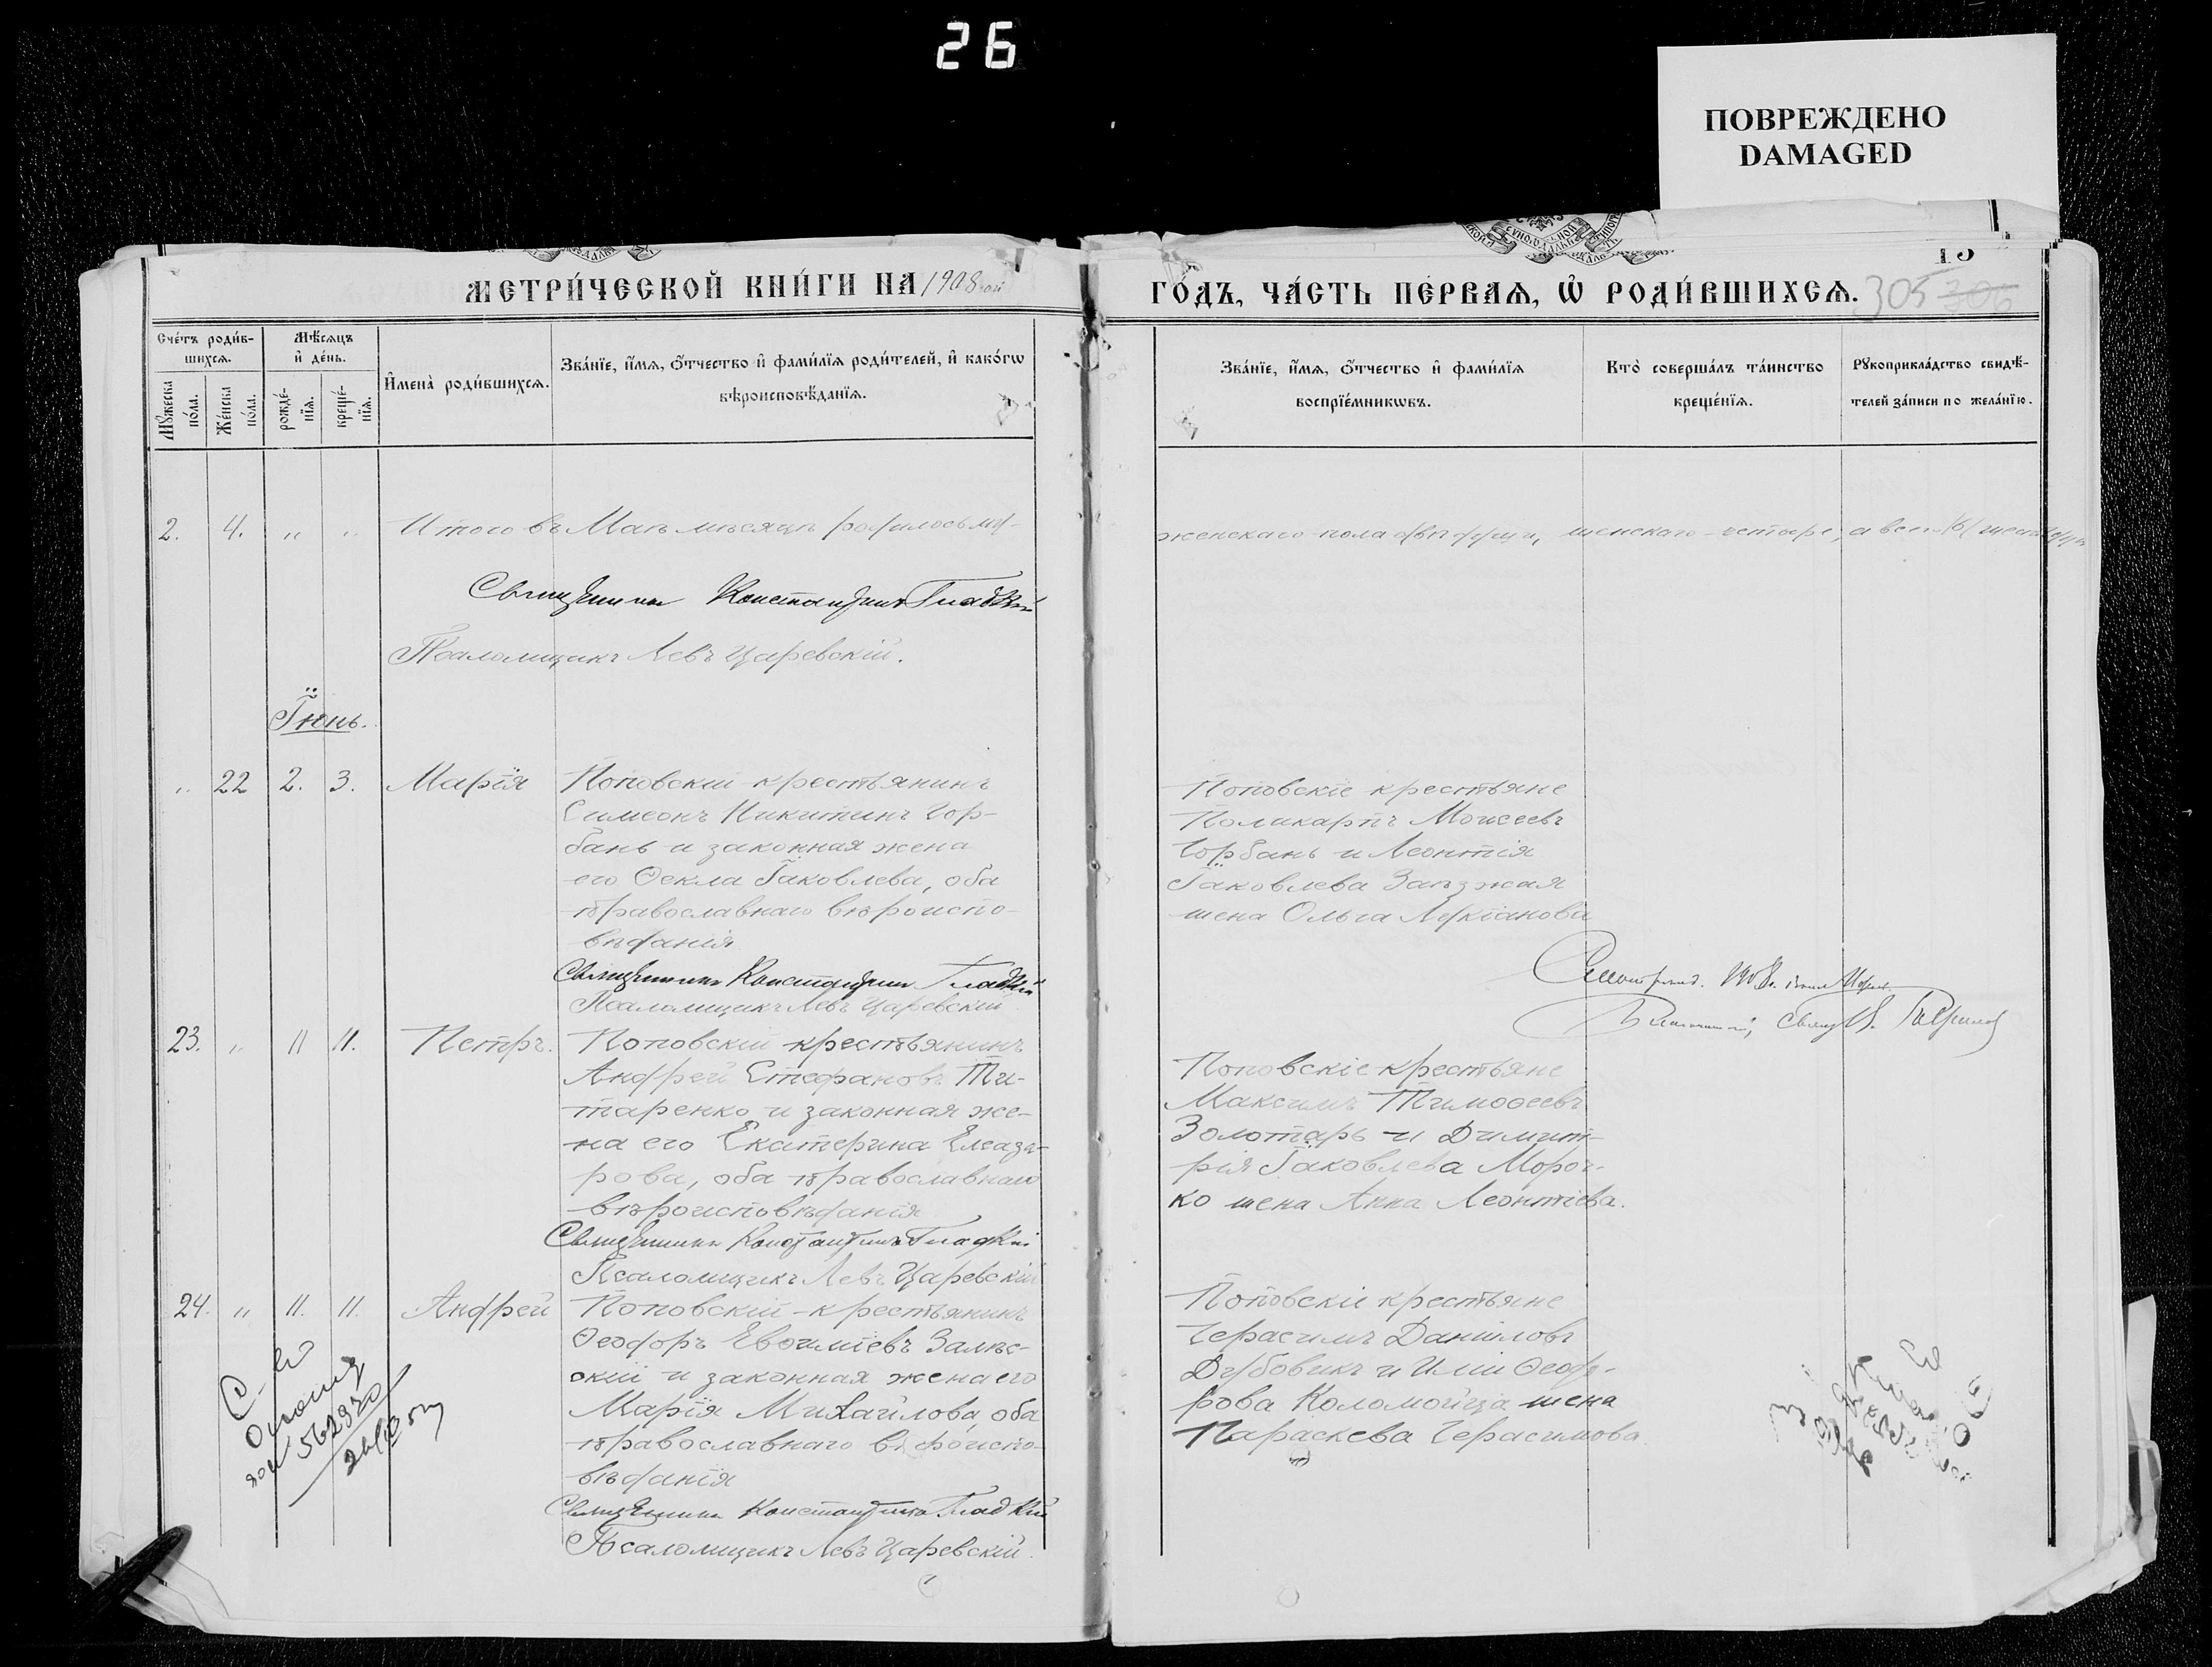 26
ПОВРЕЖДЕНО
DAMAGED
МЕТРИ́ЧЕСКОЙ КНИ́ГИ НА 1908 ой
ГО́ДЪ, ЧА́СТЬ ПЕ́РВАѦ, Ѡ҆ РОДИ́ВШИХСѦ. 305 306
Сче́тъ роди́в-
шихсѧ.
Мꙋ́жеска по́ла.
Же́нска по́ла.
Мѣ́сѧцъ
и҆ де́нь.
рожде́-нїѧ.
креще́-нїѧ.
И҆мена̀ роди́вшихсѧ.
Зва́нїе, и҆́мѧ, ѻ҆́тчество и҆ фами́лїѧ роди́телей, и҆ како́гѡ
вѣроисповѣ́данїѧ.
Зва́нїе, и҆́мѧ, ѻ҆́тчество и҆ фами́лїѧ
воспрїе́мникѡвъ.
Кто̀ соверша́лъ та́инство
креще́нїѧ.
Рꙋкоприкла́дство свидѣ́-
телей за́писи по жела́нїю.
2. 4. " " Итого въ Маѣ мѣсяцѣ родилось му-
женскаго пола двѣ души, женскаго четыре, а всего
Священникъ Константинъ Гладкій
Псаломщикъ Левъ Царевскій.
Іюнь.
" 22 2. 3. Марія Поповскій крестьянинъ
Симеонъ Никитинъ Гор-
бань и законная жена
его Ѳекла Іаковлева, оба
православнаго вѣроиспо-
вѣданія
Священникъ Константинъ Гладкій
Псаломщикъ Левъ Царевскій
Поповскіе крестьяне
Поликарпъ Моисеевъ
Горбань и Леонтія
Іаковлева
жена Ольга
23. " 11 11. Петръ. Поповскій крестьянинъ
Андрей Стефановъ Ти-
таренко и законная же-
на его Екатерина Елеаза-
рова, оба православнаго
вѣроисповѣданія
Священникъ Константинъ Гладкій
Псаломщикъ Левъ Царевскій
Поповскіе крестьяне
Максимъ Тимоѳеевъ
Золотарь и Димит-
рія Іаковлева Мороч-
ко жена Анна Леонтіева.
24. " 11. 11. Андрей Поповскій крестьянинъ
Ѳеодоръ Евѳиміевъ Залѣс-
скій и законная жена его
Марія Михайлова, оба
православнаго вѣроиспо-
вѣданія
Священникъ Константинъ Гладкій
Псаломщикъ Левъ Царевскій.
Поповскіе крестьяне
Герасимъ Даніиловъ
Дубовикъ и Иліи Ѳеодо-
рова Коломойца жена
Параскева Герасимова
562970